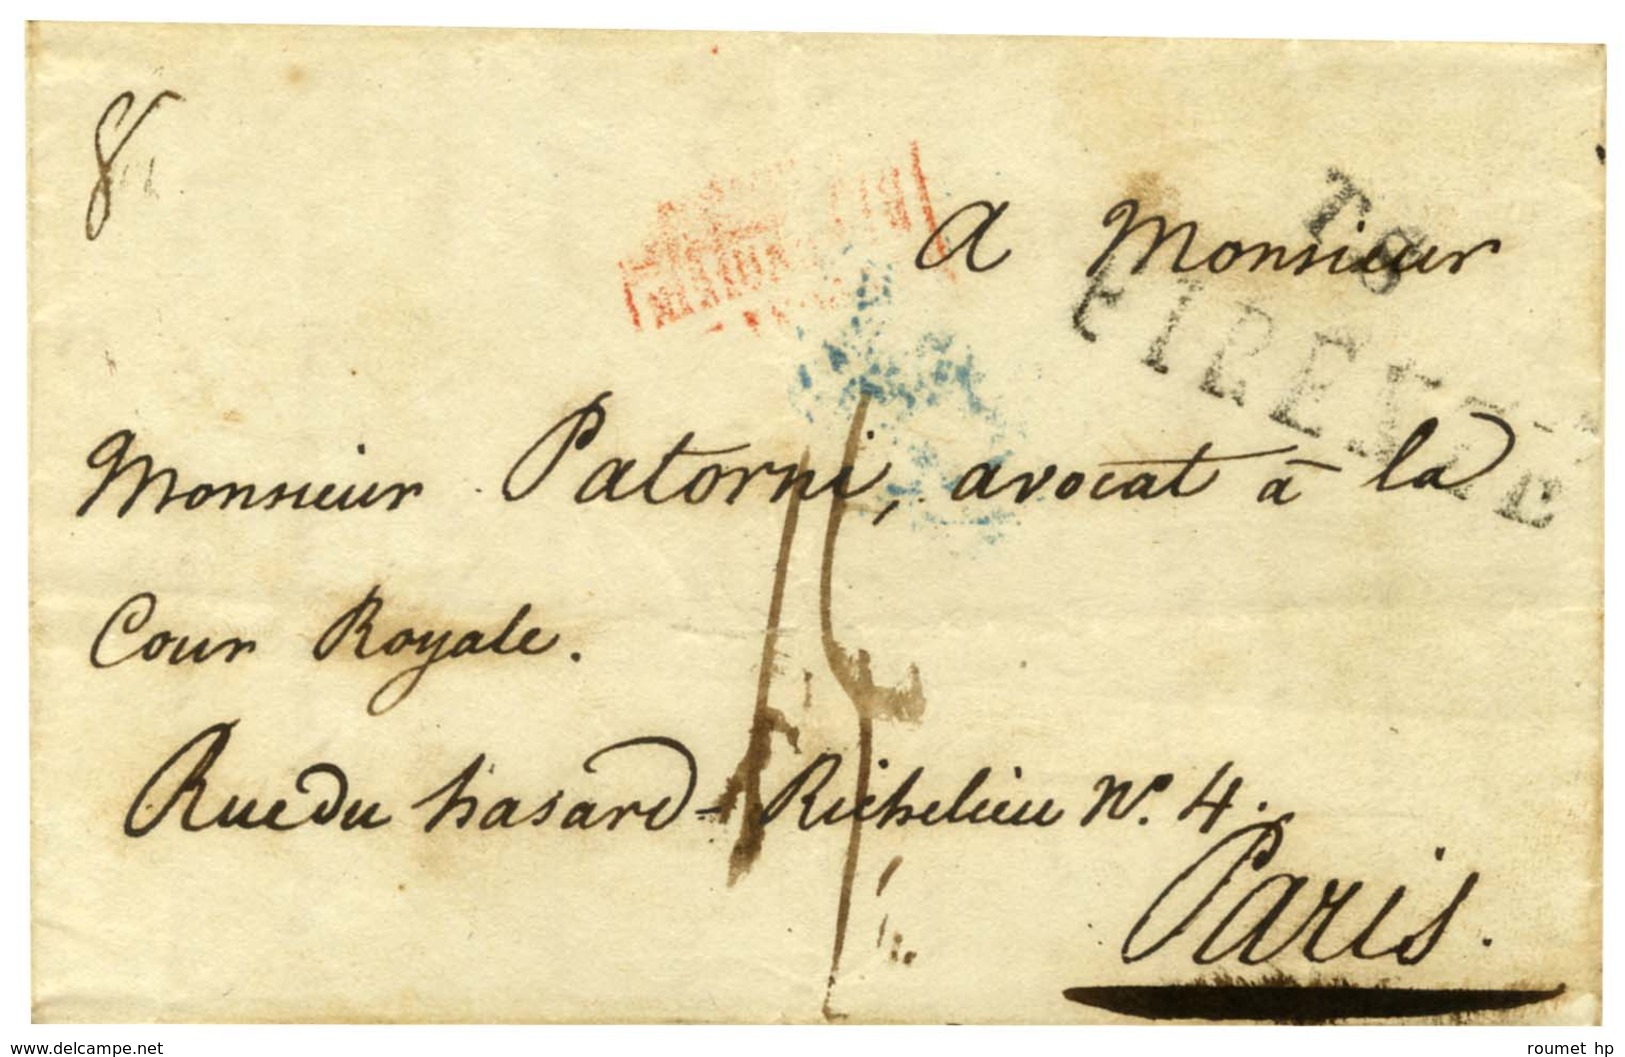 A Monsieur
TS
FIRENZE
Monsieur Patorni, avocat à la
Cour Royale.
Rue du hasard = Richelieu N.º 4.
Paris.
www.delcampe.net
roumet hp